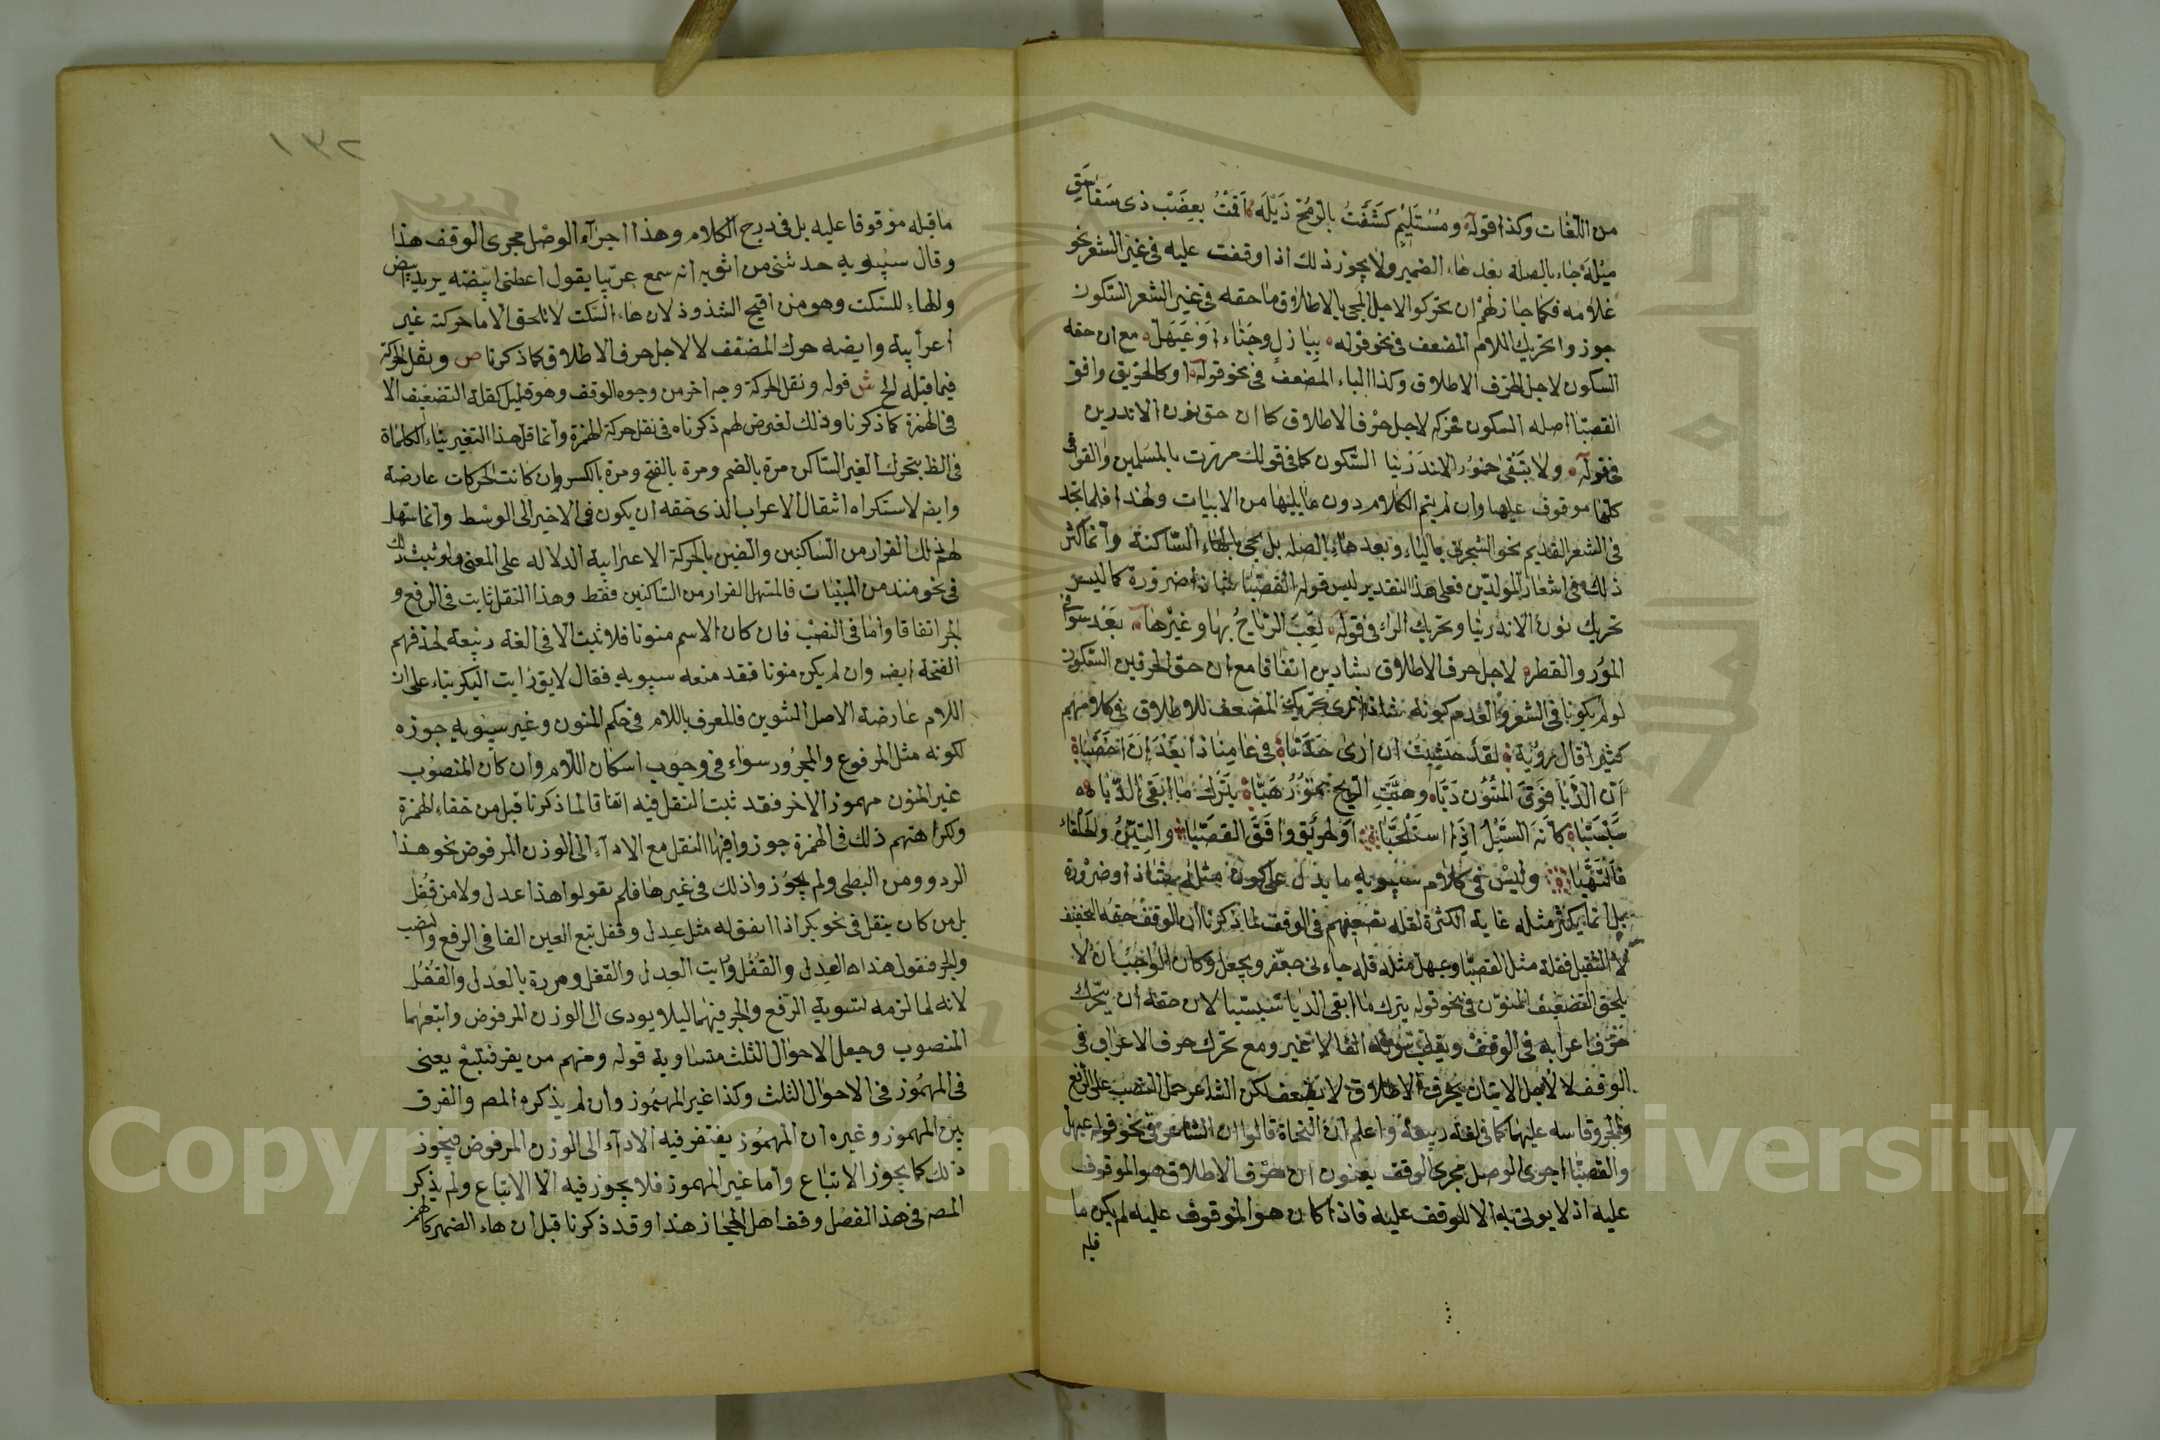 من اللغات وكذا قوله ومستليم كشفت بالرمح ذيله اقمت بعضب ذى سفاسق
ميله جاء بالصلة بعد هاء الضمير ولا يجوز ذلك اذا وقفت عليه فى غير الشعر نحو
غلامه فكما جاز لهم ان يحركوا لاجل المجى بالاطلاق ما حقه فى غير الشعر السكون
جوزوا تحريك اللام المضعف فى نحو قوله ببازل وجناء او عيهل مع ان حقه
السكون لاجل حرف الاطلاق وكذا الباء المضعف فى نحو قوله او كالحريق وافق
القصبا اصله السكون فحركه لاجل حرف الاطلاق كما ان حق نون الاندرين
فى قوله ولا تبقى خمور الاندرينا السكون كما فى قولك مررت بالمسلمين والقوافى
كلها موقوف عليها وان لم يتم الكلام دون ما يليها من الابيات ولهذا قلما تجد
فى الشعر القديم نحو الشجرتى بالياء وبعد هاء بالصله بل يجى بالهاء الساكنة وانما كثر
ذلك فى اشعار المولدين فعلى هذا التقدير ليس قوله القصبا شاذا ضرورة كما ليس
تحريك نون الاندرينا وتحريك الراء فى قوله لعب الرياح بها وغيرها بعد سوافى
المور والقطر لاجل حرف الاطلاق بشاذين اتفاقا مع ان حق الحرفين السكون
لو لم يكونا فى الشعر ولعدم كونه شاذا ترى تحريك المضعف للاطلاق فى كلامهم
كثيرا قال رؤبة لقد خشيت ان ارى جدبا فى عامنا ذا بعد ان اخصبا
ان الدبا فوق المتون دبا وهبت الريح بمور هبا يترك ما ابقى الدبا
سبسبا كانه السيل اذا اسلحبا او كالحريق وافق القصبا والتبن والحلفاء
فالتهبا وليس فى كلام سيبويه ما يدل على كون مثله شاذا او ضرورة
بل انما يكثر مثله غاية الكثرة لقله تضعيفهم فى الوقف لما ذكرنا ان الوقف حقه التخفيف
لا التثقيل فقلة مثل القصبا وعيهل مثل قلة جاءنى جعفر ويجعل وكان الواجب ان لا
يلحق التضعيف المنون فى نحو قوله يترك ما ابقى الدبا سبسبا لان حقه ان يتحرك
حرف اعرابه فى الوقف ويقلب تنوينه الفا لا غير ومع تحرك حرف الاعراب فى
الوقف لا لاجل الاتيان بحرف الاطلاق لا يضعف لكن الشاعر حمل النصب على الرفع
والجر وقاسه عليهما كما فى لغة ربيعة واعلم ان النحاة قالوا ان الشاعر فى نحو قوله عيهل
والقصبا اجرى الوصل مجرى الوقف يعنون ان حرف الاطلاق هو الموقوف
عليه اذ لا يوتى به الا للوقف عليه فاذا كان هو الموقوف عليه لم يكن ما
قبله
١٣٢
ما قبله موقوفا عليه بل فى درج الكلام وهذا اجراء الوصل مجرى الوقف هذا
وقال سيبويه حدثنى من اثق به انه سمع عربيا يقول اعطنى ابيضه يريد ابيض
والهاء للسكت وهو من اقبح الشذوذ لان هاء السكت لا تلحق الا ما حركته غير
اعرابية وايضه حرك المضعف لا لاجل حرف الاطلاق كما ذكرنا ص ونقل الحركة
فيما قبله الخ ش قوله ونقل الحركة وجه اخر من وجوه الوقف وهو قليل كقلة التضعيف الا
فى الهمزة كما ذكرنا وذلك لغرض لهم ذكرناه فى نقل حركة الهمزة وانما قل هذا التغير بناء الكلماة
فى الظ بتحرك الغير الساكن مرة بالضم ومرة بالفتح ومرة بالكسر وان كانت الحركات عارضة
وايض لاستكراه انتقال الاعراب الذى حقه ان يكون فى الاخير الى الوسط وانما سهل
لهم ذلك الفرار من الساكنين والضن بالحركة الاعرابية الدالة على المعنى ولو ثبت ذلك
فى نحو منذ من المبنيات فالمسهل الفرار من الساكنين فقط وهذا النقل ثابت فى الرفع و
الجر اتفاقا واما فى النصب فان كان الاسم منونا فلا ثبت الا فى لغة ربيعة لحذفهم
الفتحة ايضه وان لم يكن منونا فقد منعه سيبويه فقال لا يق رايت البكر بناء على ان
اللام عارضة والاصل التنوين فالمعرف باللام فى حكم المنون وغير سيبويه جوزه
لكونه مثل المرفوع والمجرور سواء فى وجوب اسكان اللام وان كان المنصوب
غير المنون مهموز الاخر فقد ثبت النقل فيه اتفاقا لما ذكرنا قبل من خفاء الهمزة
ولكراهتهم ذلك فى الهمزة جوزوا فيها النقل مع الاداء الى الوزن المرفوض نحو هذا
الردو ومن البطى ولم يجوزوا ذلك فى غيرها فلم يقولوا هذا عدل ولا من قفل
بل من كان ينقل فى نحو بكر اذا اتفق له مثل عدل وقفل تبع العين الفا فى الرفع والنصب
والجر فنقول هذا العدل والقفل ورايت العدل والقفل ومررة بالعدل والقفل
لانه لما لزمه تسوية الرفع والجر فيهما ليلا يودى الى الوزن المرفوض واتبعهما
المنصوب وجعل الاحوال الثلث متساوية قوله ومنهم من يفر فتتبع يعنى
فى المهموز فى الاحوال الثلث وكذا غير المهموز وان لم يذكره المص والفرق
بين المهموز وغيره ان المهموز يغتفر فيه الاداء الى الوزن المرفوض فيجوز
ذلك كما يجوز الاتباع واما غير المهموز فلا يجوز فيه الا الاتباع ولم يذكر
المص فى هذا الفصل وقف اهل الحجاز هذا وقد ذكرنا قبل ان هاء الضمير كالهمز
Copyright © King Saud University